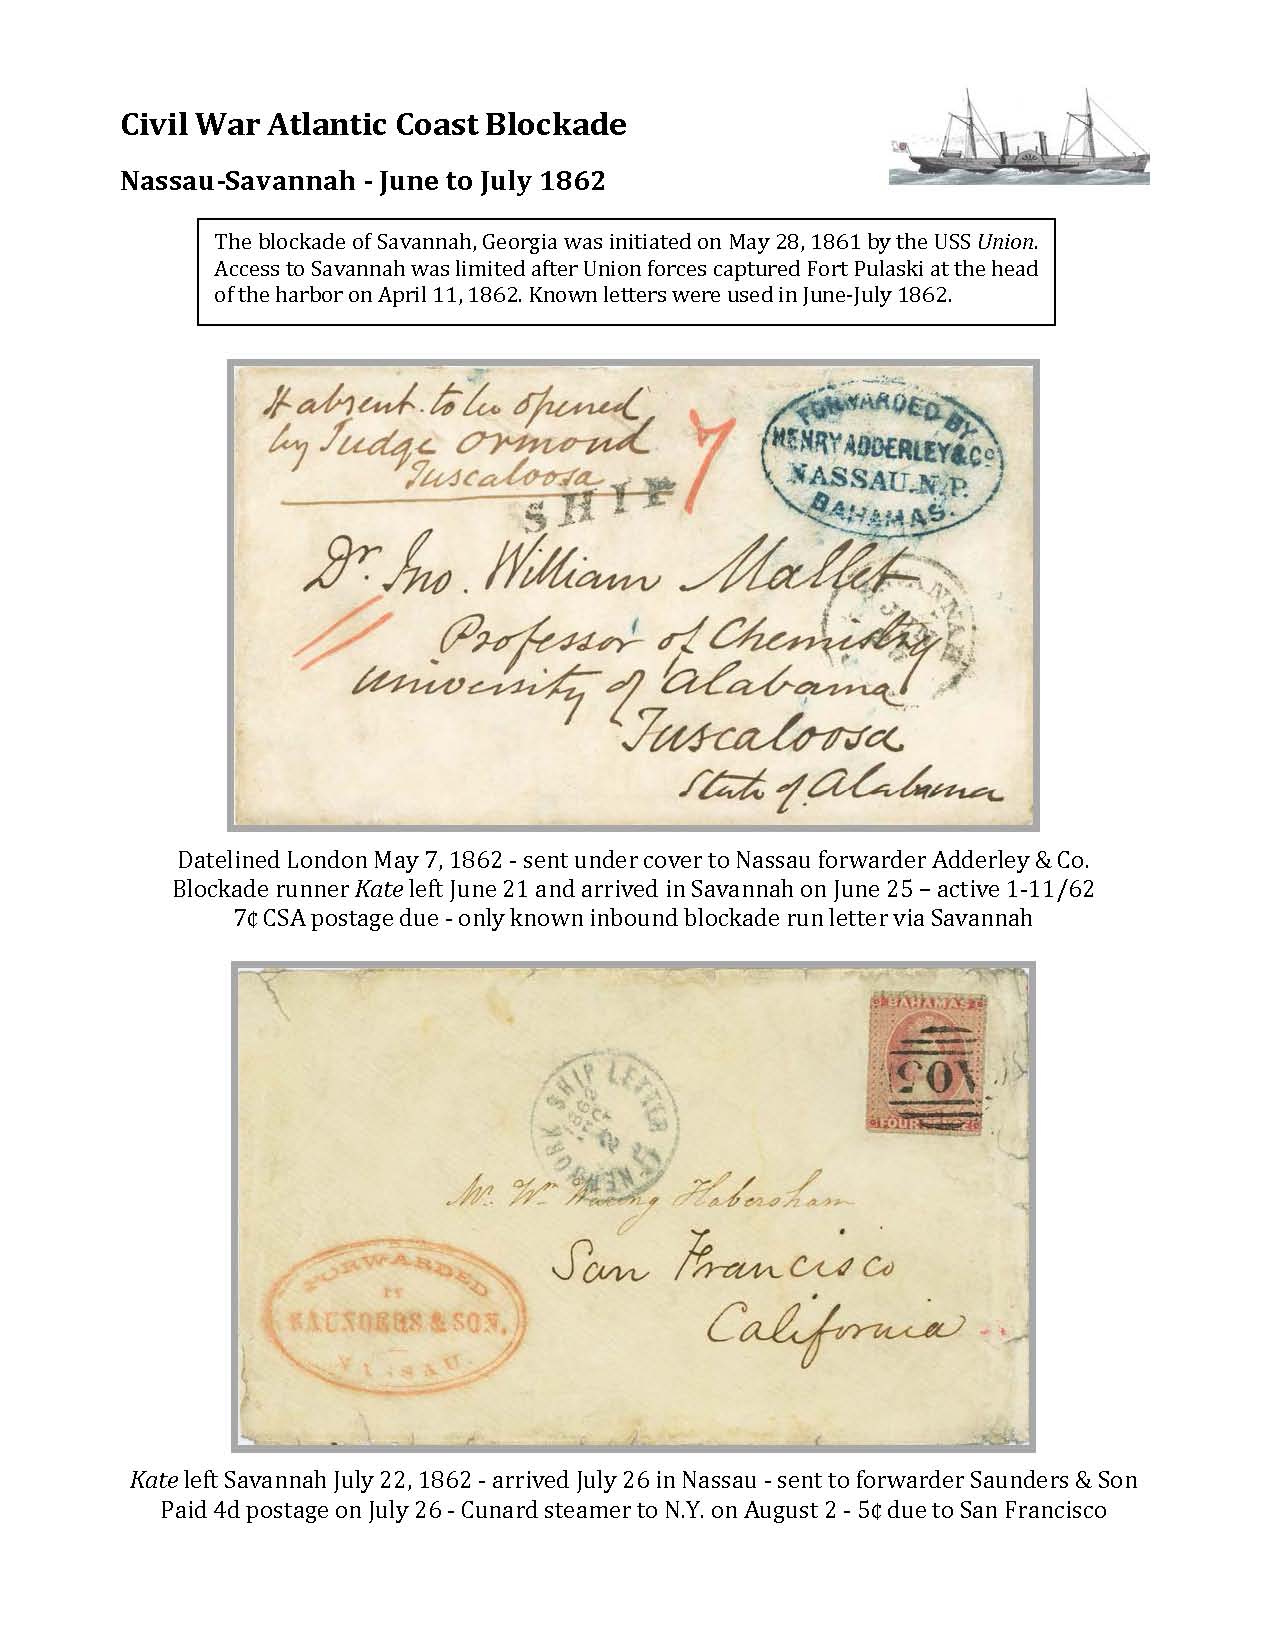 Civil War Atlantic Coast Blockade
Nassau-Savannah - June to July 1862
The blockade of Savannah, Georgia was initiated on May 28, 1861 by the USS Union.
Access to Savannah was limited after Union forces captured Fort Pulaski at the head
of the harbor on April 11, 1862. Known letters were used in June-July 1862.
If absent to be opened
by Judge Ormond
Tuscaloosa
SHIP
7
FORWARDED BY
HENRY ADDERLEY & Co
NASSAU. N.P.
BAHAMAS.
Dr. Jno. William Mallet
Professor of Chemistry
University of Alabama
Tuscaloosa
State of Alabama
Datelined London May 7, 1862 - sent under cover to Nassau forwarder Adderley & Co.
Blockade runner Kate left June 21 and arrived in Savannah on June 25 – active 1-11/62
7¢ CSA postage due - only known inbound blockade run letter via Savannah
BAHAMAS
A05
FOUR
SHIP LETTER
5
Mr. Wm Waring Habersham
San Francisco
California
FORWARDED
BY
SAUNDERS & SON.
NASSAU.
Kate left Savannah July 22, 1862 - arrived July 26 in Nassau - sent to forwarder Saunders & Son
Paid 4d postage on July 26 - Cunard steamer to N.Y. on August 2 - 5¢ due to San Francisco